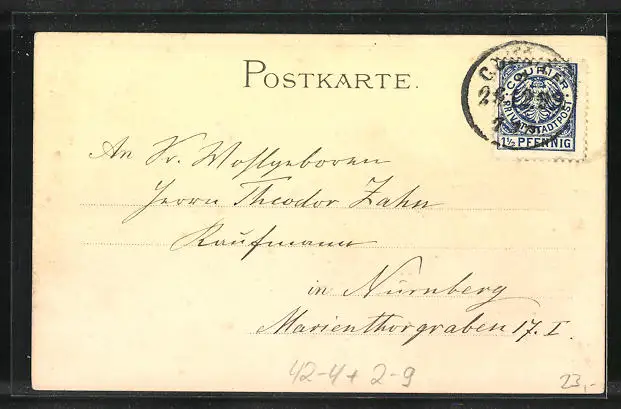 POSTKARTE.
COURIER
PRIVATSTADTPOST
1½ PFENNIG
An Sr. Wohlgeboren
Herrn Theodor Zahn
Kaufmann
in Nürnberg
Marienthorgraben 17. I.
42-4+2-9
23,-